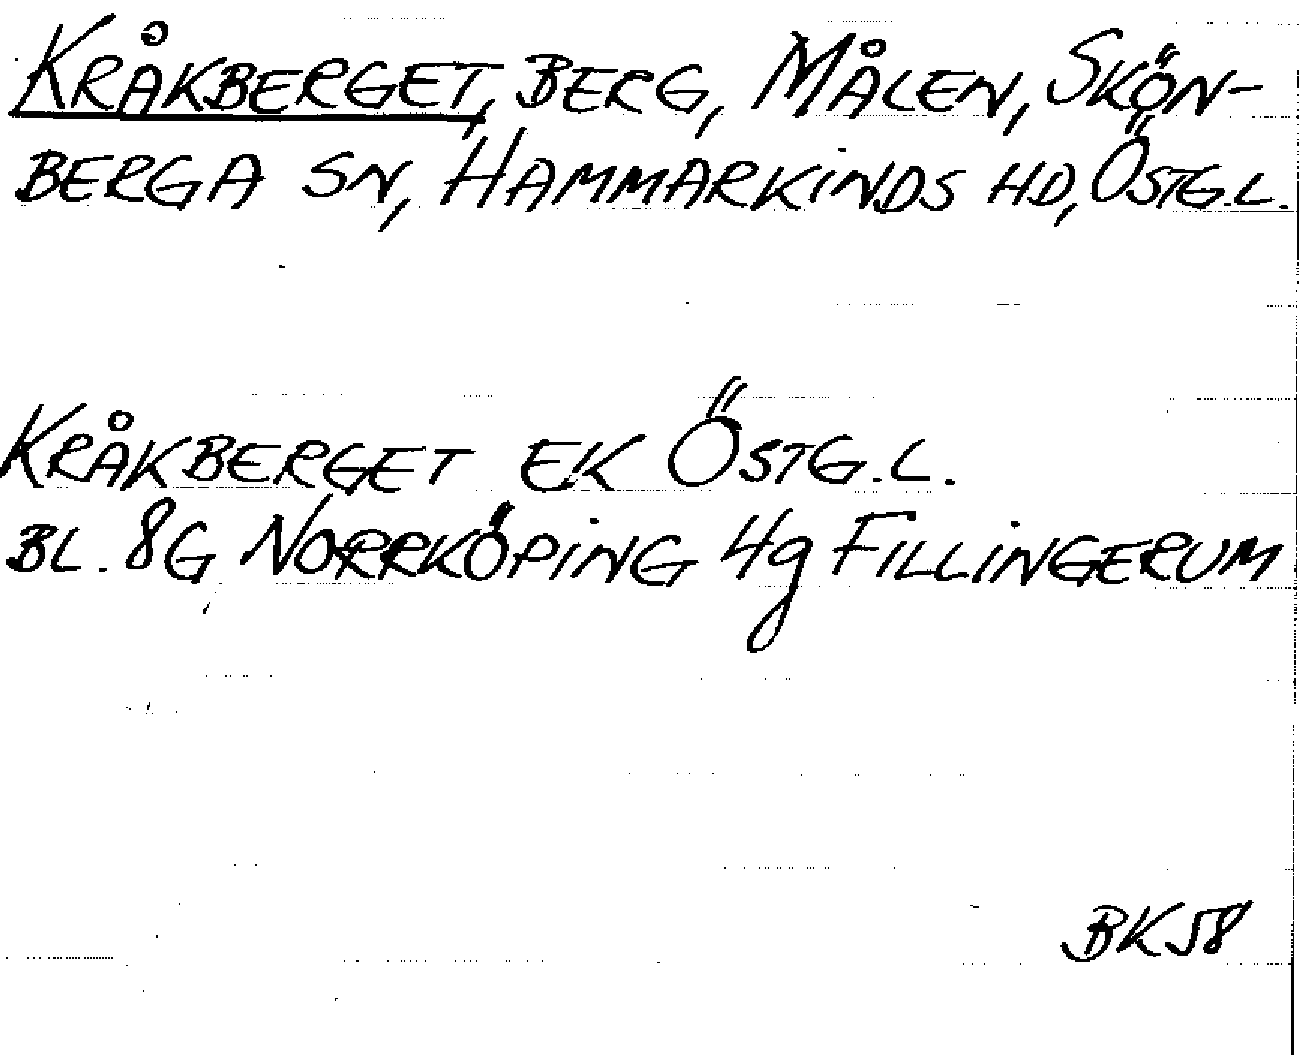 KRÅKBERGET, BERG, MÅLEN, SKÖN-
BERGA SN, HAMMARKINDS HD, ÖSTG.L.
KRÅKBERGET EK ÖSTG.L.
BL. 8G NORRKÖPING 4g FILLINGERUM
BK58